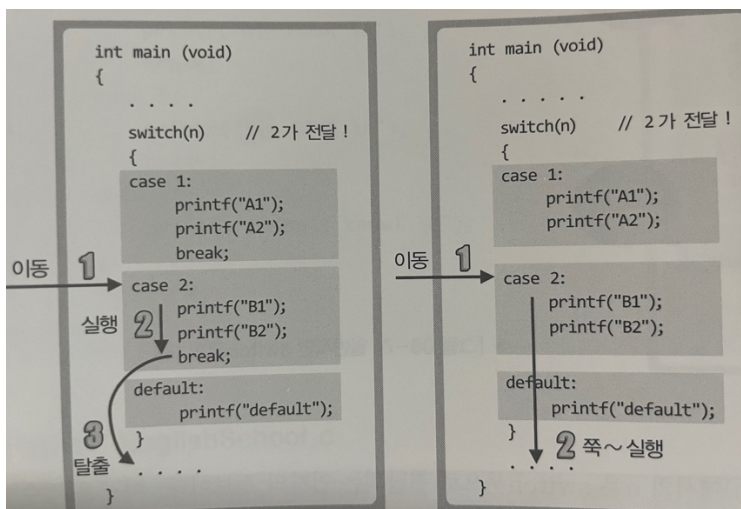 int main (void)
{
. . . .
switch(n) // 2가 전달 !
{
case 1:
printf("A1");
printf("A2");
break;
이동 1
case 2:
printf("B1");
실행 2
printf("B2");
break;
default:
printf("default");
3
}
탈출
. . . .
}
int main (void)
{
. . . . .
switch(n) // 2가 전달 !
{
case 1:
printf("A1");
printf("A2");
이동 1
case 2:
printf("B1");
printf("B2");
default:
printf("default");
}
2 쭉~ 실행
. . . .
}